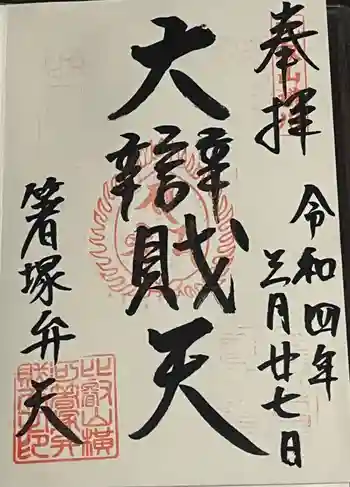 奉拝
令和四年
三月廿七日
大辯財天
箸塚弁天
比叡山横